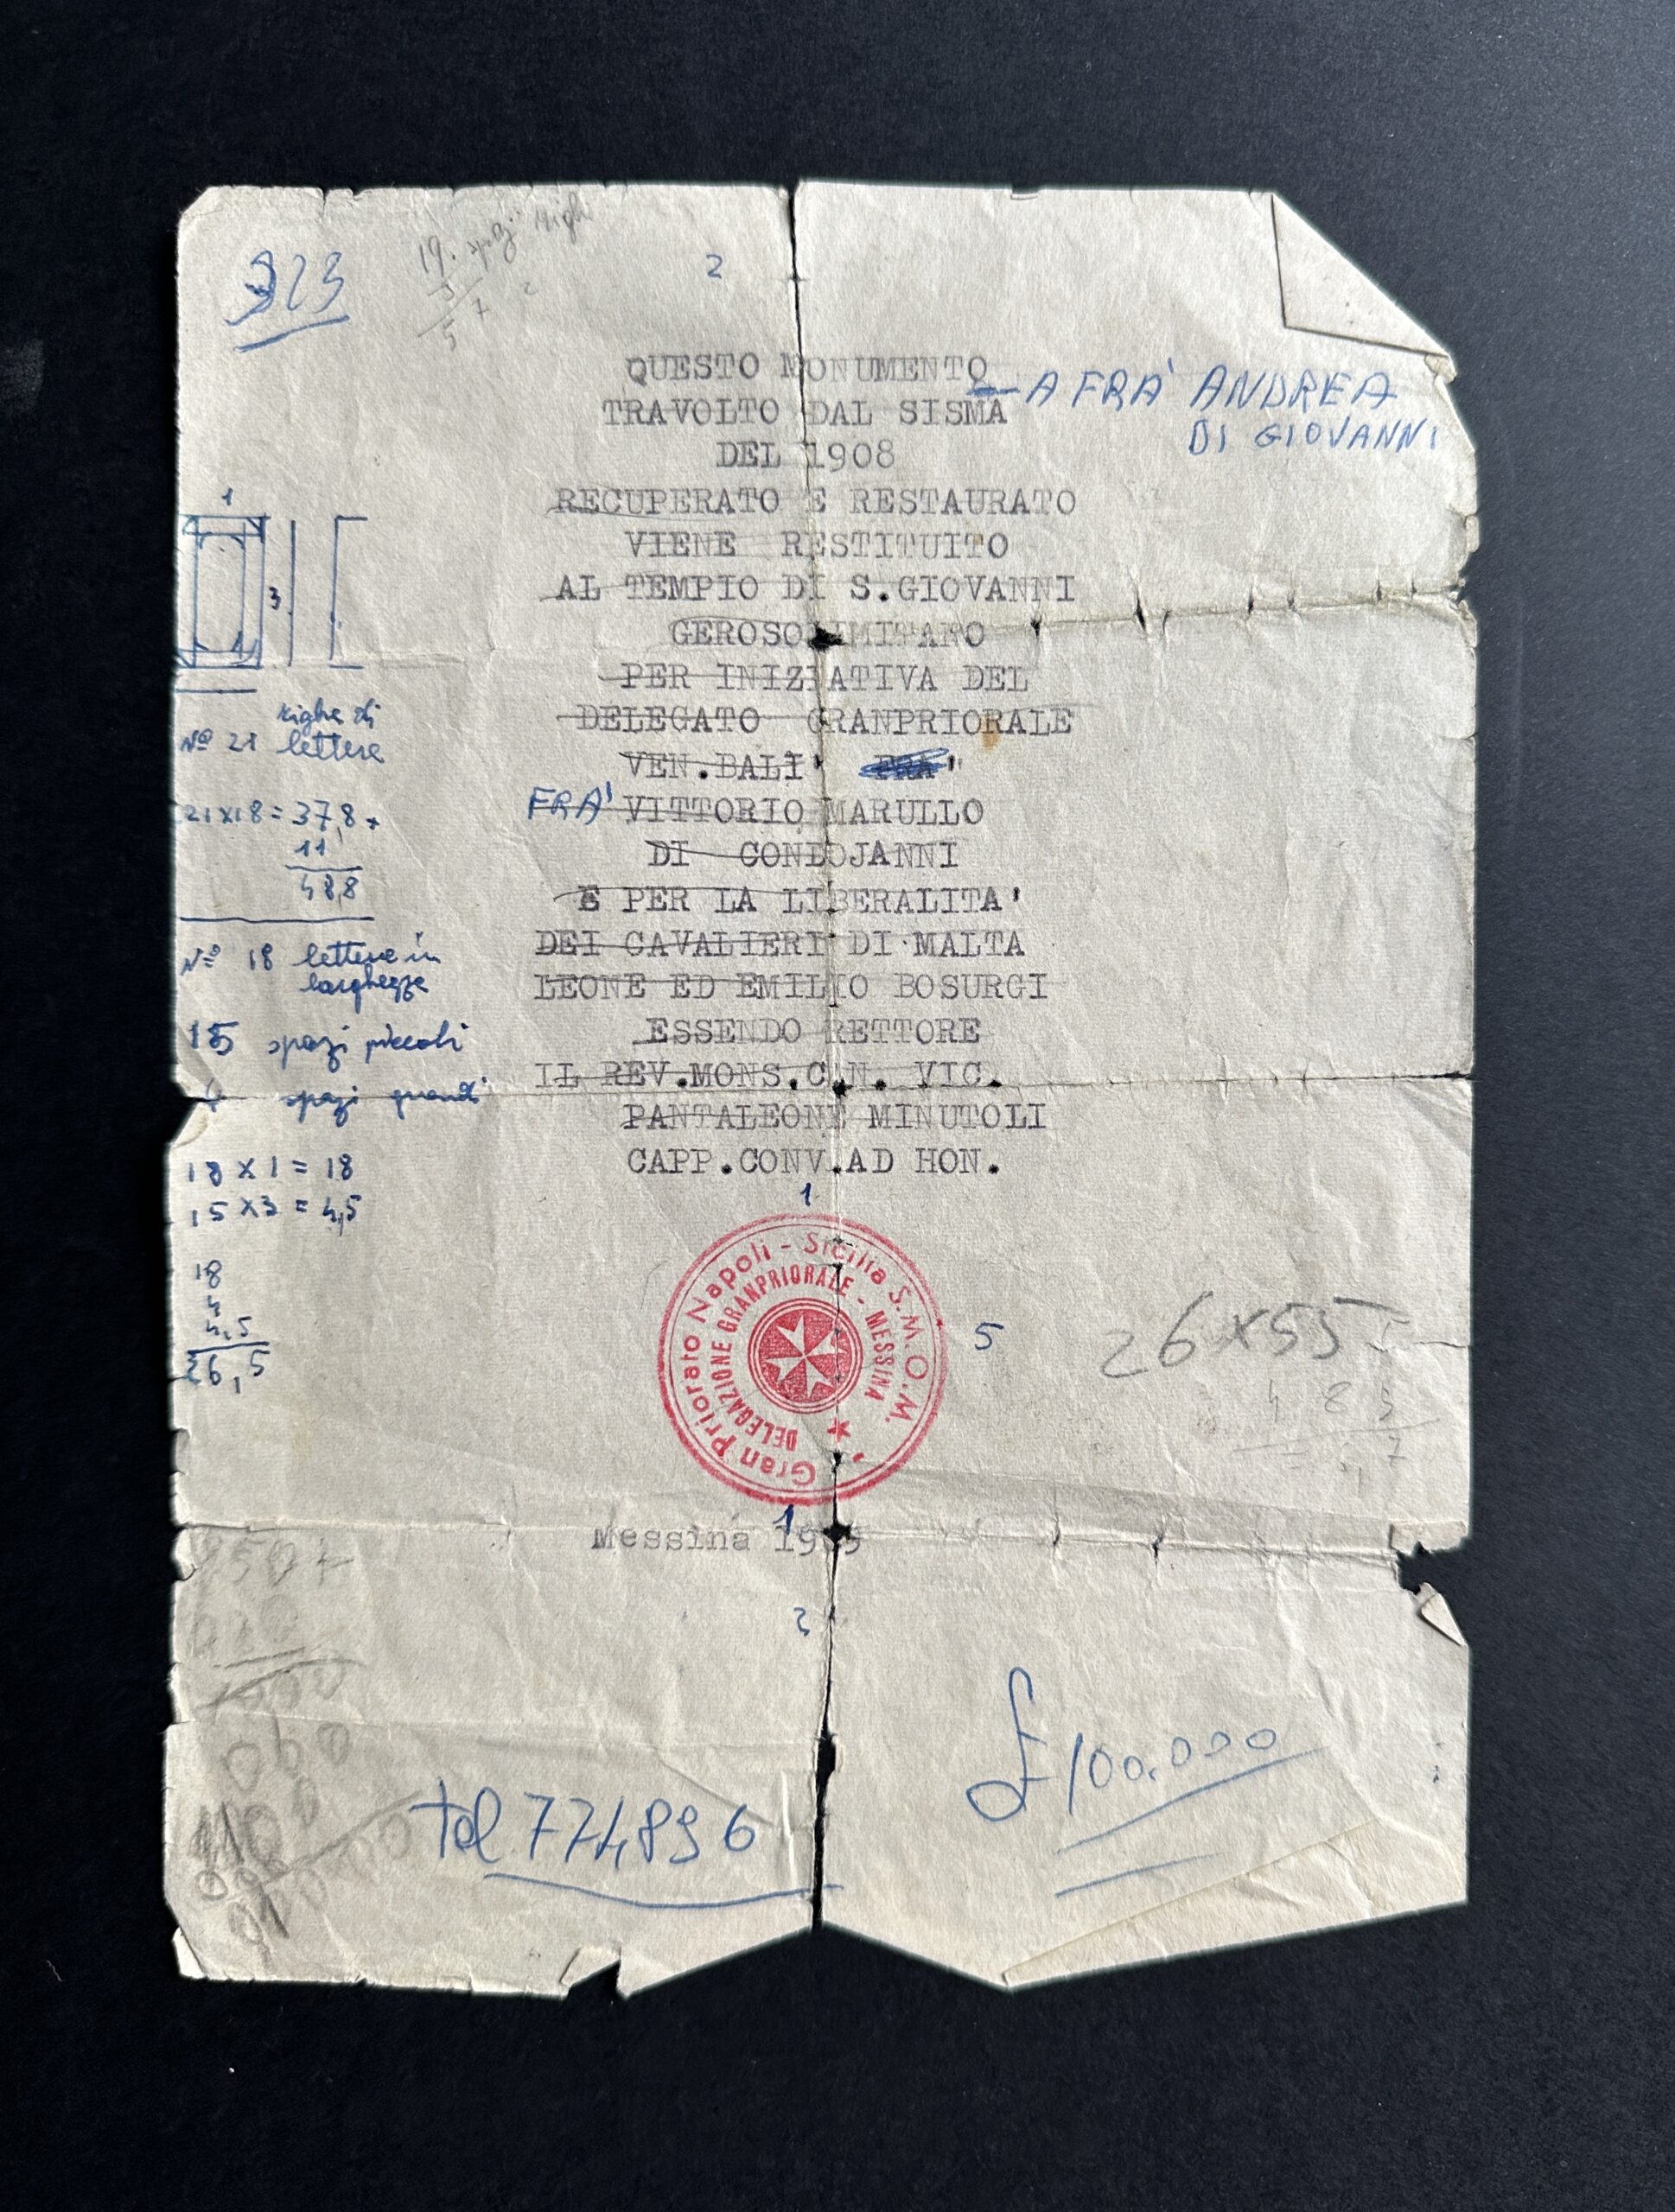 323
19. spazi righe
3
5 7
2
2
QUESTO MONUMENTO
A FRA' ANDREA
DI GIOVANNI
TRAVOLTO DAL SISMA
DEL 1908
RECUPERATO E RESTAURATO
VIENE RESTITUITO
AL TEMPIO DI S.GIOVANNI
GEROSOLIMITANO
PER INIZIATIVA DEL
DELEGATO GRANPRIORALE
VEN.BALI' FRA'
FRA' VITTORIO MARULLO
DI CONDOJANNI
E PER LA LIBERALITA'
DEI CAVALIERI DI MALTA
LEONE ED EMILIO BOSURGI
ESSENDO RETTORE
IL REV.MONS.CAN. VIC.
PANTALEONE MINUTOLI
CAPP.CONV.AD HON.
1
3
righe di
Nº 21 lettere
21x18=37,8+
11
48,8
Nº 18 lettere in
larghezza
15 spazi piccoli
4 spazi grandi
18 x 1 = 18
15 x 3 = 4,5
18
4
4,5
26,5
1
Gran Priorato Napoli - Sicilia S.M.O.M.
DELEGAZIONE GRANPRIORALE - MESSINA
5
26x55
1
Messina
3
£100.000
tel 774896